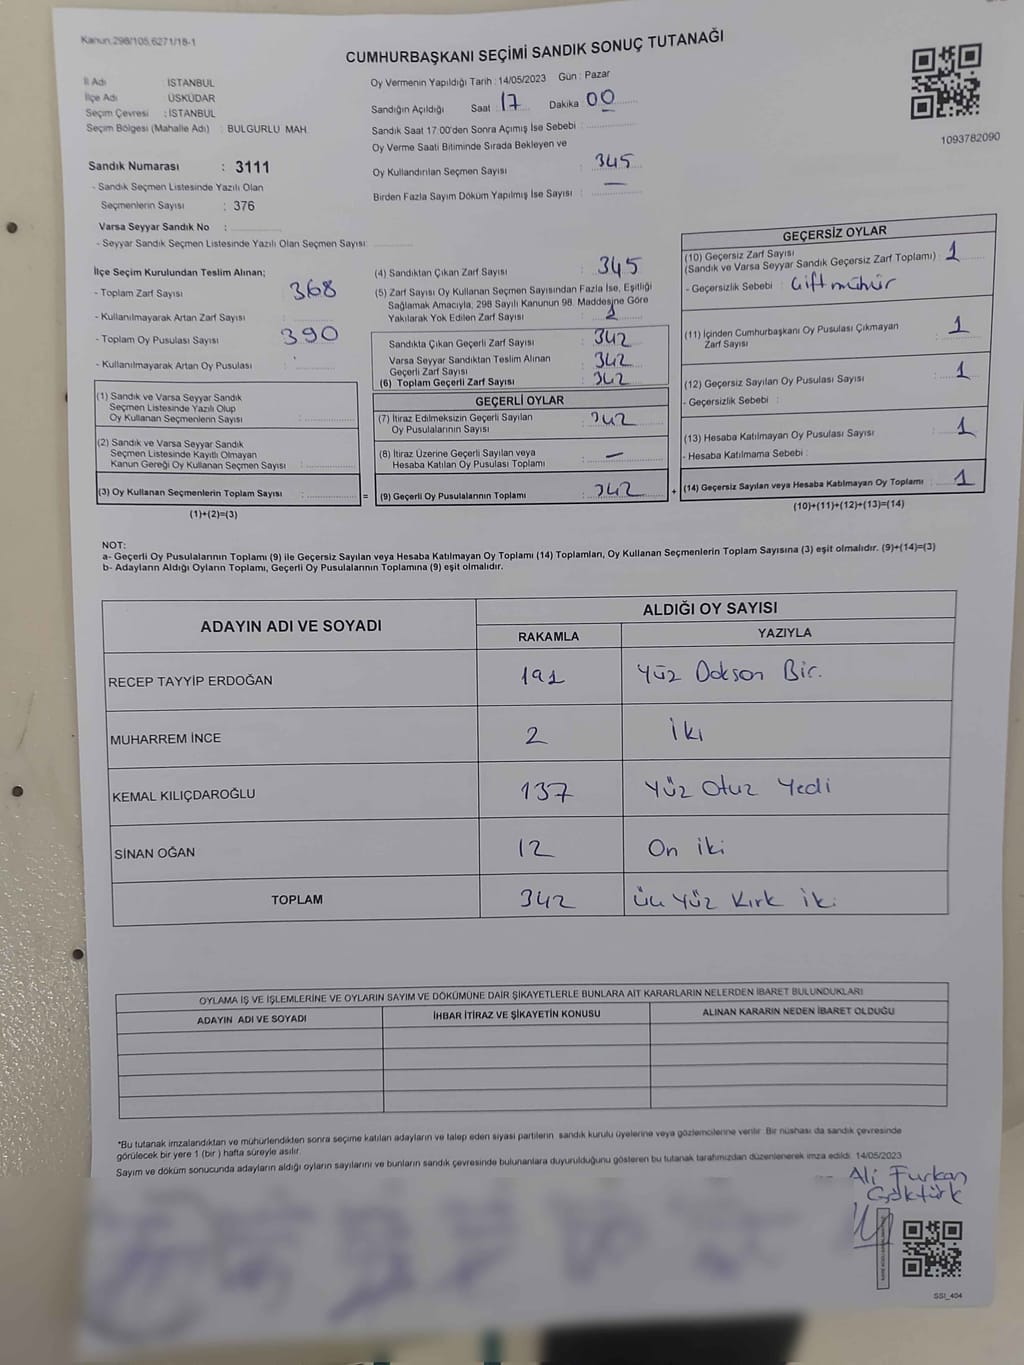 Kanun,298/105,6271/18-1
CUMHURBAŞKANI SEÇİMİ SANDIK SONUÇ TUTANAĞI
İl Adı : İSTANBUL
İlçe Adı : ÜSKÜDAR
Seçim Çevresi : İSTANBUL
Seçim Bölgesi (Mahalle Adı) : BULGURLU MAH.
Oy Vermenin Yapıldığı Tarih : 14/05/2023 Gün : Pazar
Sandığın Açıldığı Saat : 17 Dakika 00
Sandık Saat 17:00'den Sonra Açımış İse Sebebi :
Oy Verme Saati Bitiminde Sırada Bekleyen ve
Oy Kullandırılan Seçmen Sayısı : 345
Birden Fazla Sayım Döküm Yapılmış İse Sayısı : —
1093782090
Sandık Numarası : 3111
- Sandık Seçmen Listesinde Yazılı Olan
Seçmenlerin Sayısı : 376
Varsa Seyyar Sandık No :
- Seyyar Sandık Seçmen Listesinde Yazılı Olan Seçmen Sayısı:
İlçe Seçim Kurulundan Teslim Alınan;
- Toplam Zarf Sayısı : 368
- Kullanılmayarak Artan Zarf Sayısı :
- Toplam Oy Pusulası Sayısı : 390
- Kullanılmayarak Artan Oy Pusulası :
(1) Sandık ve Varsa Seyyar Sandık
Seçmen Listesinde Yazılı Olup
Oy Kullanan Seçmenlerin Sayısı :
(2) Sandık ve Varsa Seyyar Sandık
Seçmen Listesinde Kayıtlı Olmayan
Kanun Gereği Oy Kullanan Seçmen Sayısı :
(3) Oy Kullanan Seçmenlerin Toplam Sayısı :
(1)+(2)=(3)
(4) Sandıktan Çıkan Zarf Sayısı : 345
(5) Zarf Sayısı Oy Kullanan Seçmen Sayısından Fazla İse, Eşitliği
Sağlamak Amacıyla, 298 Sayılı Kanunun 98. Maddesine Göre
Yakılarak Yok Edilen Zarf Sayısı : 1
Sandıkta Çıkan Geçerli Zarf Sayısı : 342
Varsa Seyyar Sandıktan Teslim Alınan
Geçerli Zarf Sayısı : 342
(6) Toplam Geçerli Zarf Sayısı : 342
GEÇERLİ OYLAR
(7) İtiraz Edilmeksizin Geçerli Sayılan
Oy Pusulalarının Sayısı : 342
(8) İtiraz Üzerine Geçerli Sayılan veya
Hesaba Katılan Oy Pusulası Toplamı : —
= (9) Geçerli Oy Pusulalarının Toplamı : 342 +
GEÇERSİZ OYLAR
(10) Geçersiz Zarf Sayısı
(Sandık ve Varsa Seyyar Sandık Geçersiz Zarf Toplamı) : 1
- Geçersizlik Sebebi : Çift mühür
(11) İçinden Cumhurbaşkanı Oy Pusulası Çıkmayan
Zarf Sayısı : 1
(12) Geçersiz Sayılan Oy Pusulası Sayısı : 1
- Geçersizlik Sebebi :
(13) Hesaba Katılmayan Oy Pusulası Sayısı : 1
- Hesaba Katılmama Sebebi :
(14) Geçersiz Sayılan veya Hesaba Katılmayan Oy Toplamı : 1
(10)+(11)+(12)+(13)=(14)
NOT:
a- Geçerli Oy Pusulalarının Toplamı (9) ile Geçersiz Sayılan veya Hesaba Katılmayan Oy Toplamı (14) Toplamları, Oy Kullanan Seçmenlerin Toplam Sayısına (3) eşit olmalıdır. (9)+(14)=(3)
b- Adayların Aldığı Oyların Toplamı, Geçerli Oy Pusulalarının Toplamına (9) eşit olmalıdır.
ADAYIN ADI VE SOYADI
ALDIĞI OY SAYISI
RAKAMLA YAZIYLA
RECEP TAYYİP ERDOĞAN 191 Yüz Doksan Bir.
MUHARREM İNCE 2 İki
KEMAL KILIÇDAROĞLU 137 Yüz Otuz Yedi
SİNAN OĞAN 12 On iki
TOPLAM 342 üç Yüz Kırk iki
OYLAMA İŞ VE İŞLEMLERİNE VE OYLARIN SAYIM VE DÖKÜMÜNE DAİR ŞİKAYETLERLE BUNLARA AİT KARARLARIN NELERDEN İBARET BULUNDUKLARI
ADAYIN ADI VE SOYADI İHBAR İTİRAZ VE ŞİKAYETİN KONUSU ALINAN KARARIN NEDEN İBARET OLDUĞU
*Bu tutanak imzalandıktan ve mühürlendikten sonra seçime katılan adayların ve talep eden siyasi partilerin sandık kurulu üyelerine veya gözlemcilerine verilir. Bir nüshası da sandık çevresinde
görülecek bir yere 1 (bir ) hafta süreyle asılır.
Sayım ve döküm sonucunda adayların aldığı oyların sayılarını ve bunların sandık çevresinde bulunanlara duyurulduğunu gösteren bu tutanak tarafımızdan düzenlenerek imza edildi. 14/05/2023
Ali Furkan
Göktürk
SSI_404